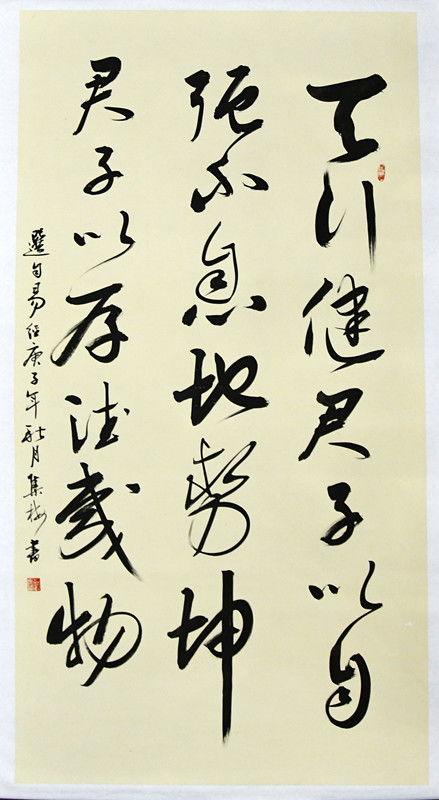 天行健君子以自
強不息地勢坤
君子以厚德載物
選句易經庚子年秋月集梅書